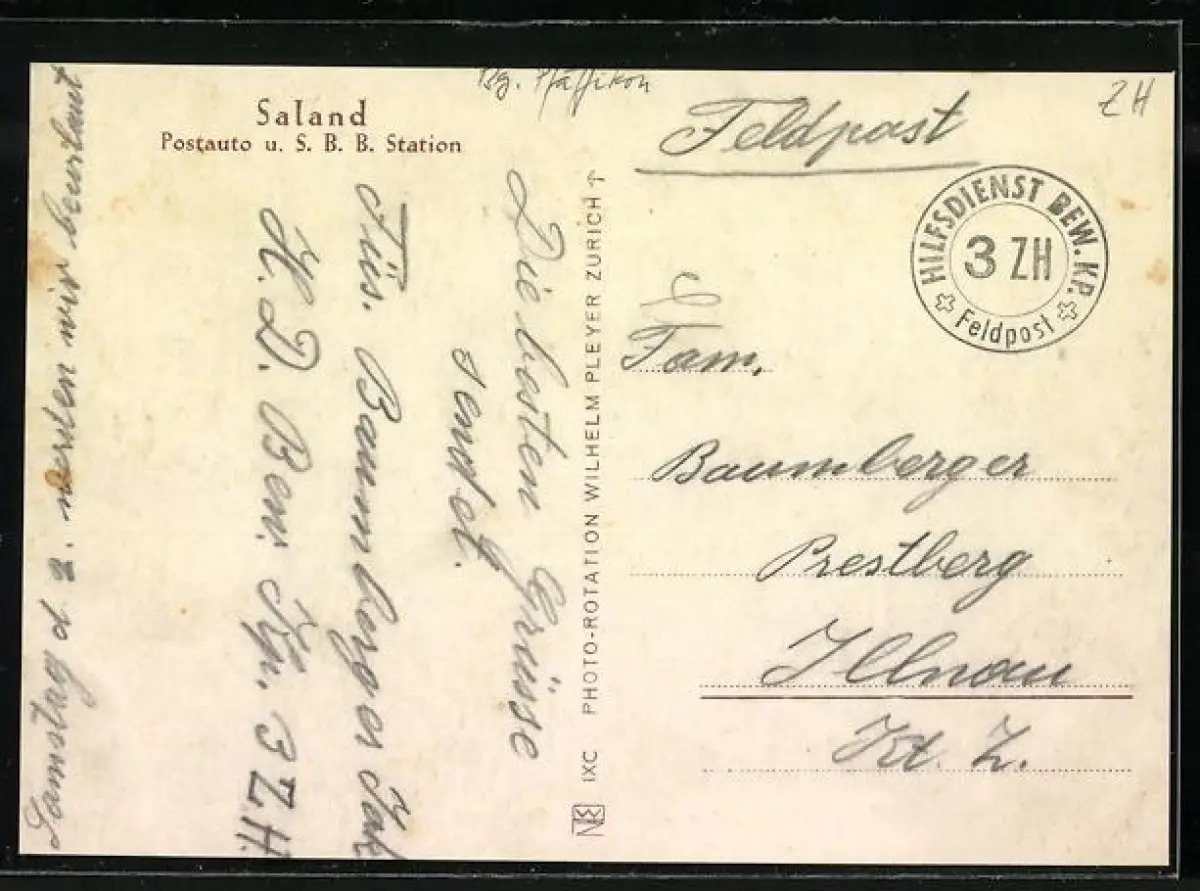 Bz. Pfäffikon
ZH
Saland
Postauto u. S. B. B. Station
Feldpost
HILFSDIENST BEW. KP.
3 ZH
Feldpost
Fam.
Baumberger
Prestberg
Illnau
Kt. Z.
PHOTO-ROTATION WILHELM PLEYER ZÜRICH
IXC
Die besten Grüsse
sendet.
Füs. Baumberger Jak
H. D. Bew. Kp. 3 Z H.
Samstag d 2. werden wir beurlaut